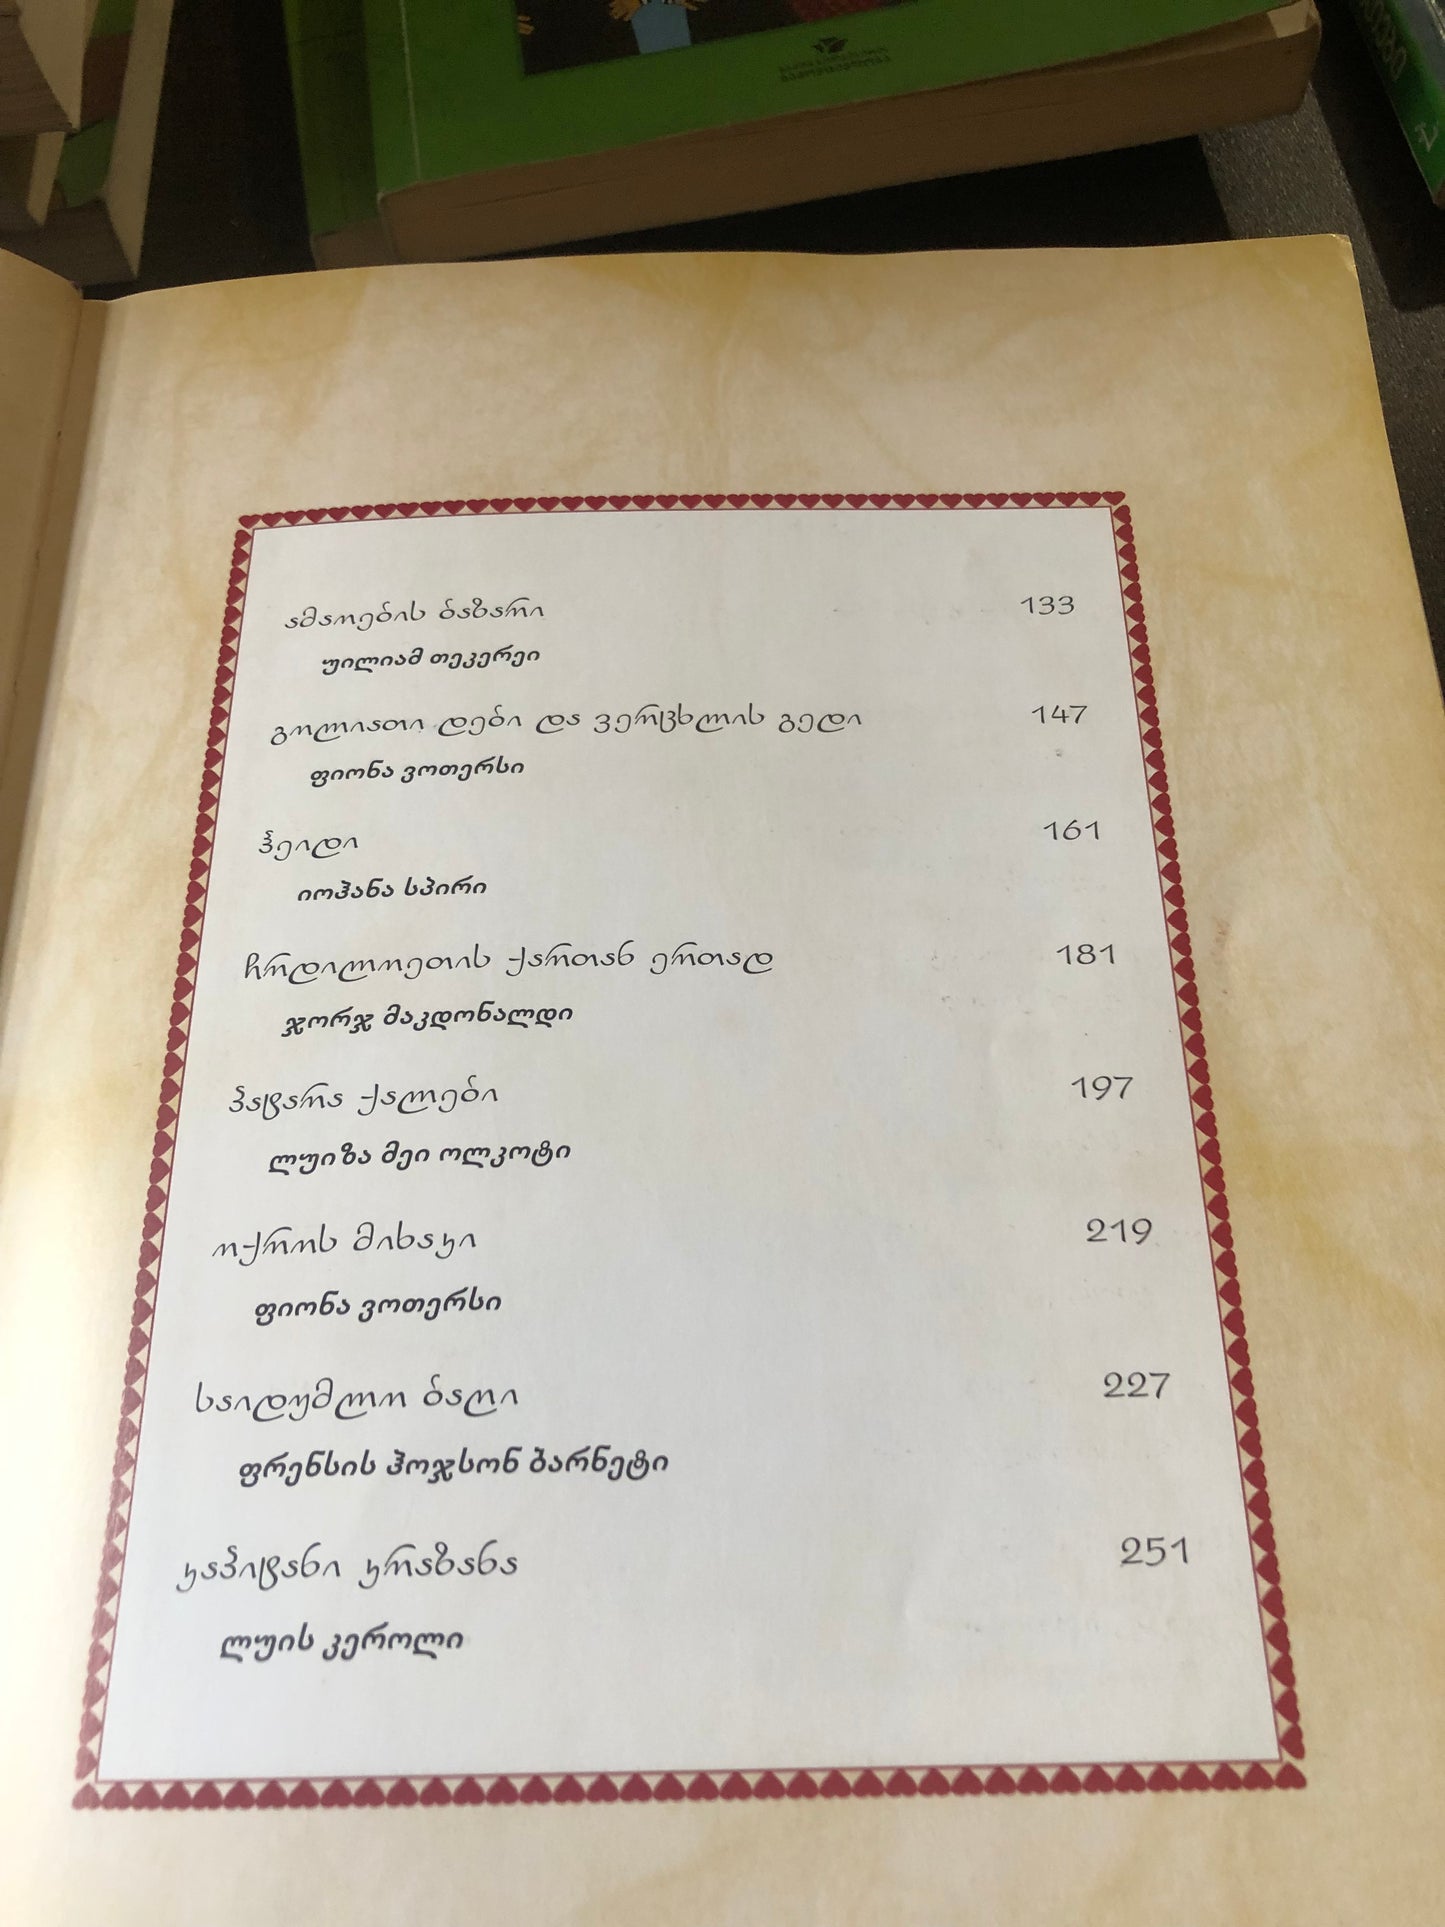 ამაოების ბაზარი 133
უილიამ თეკერეი
გოლიათი დები და ვერცხლის გედი 147
ფიონა ვოთერსი
ჰეიდი 161
იოჰანა სპირი
ჩრდილოეთის ქართან ერთად 181
ჯორჯ მაკდონალდი
პატარა ქალები 197
ლუიზა მეი ოლკოტი
ოქროს მიხაკი 219
ფიონა ვოთერსი
საიდუმლო ბაღი 227
ფრენსის ჰოჯსონ ბარნეტი
კაპიტანი კრაზანა 251
ლუის კეროლი